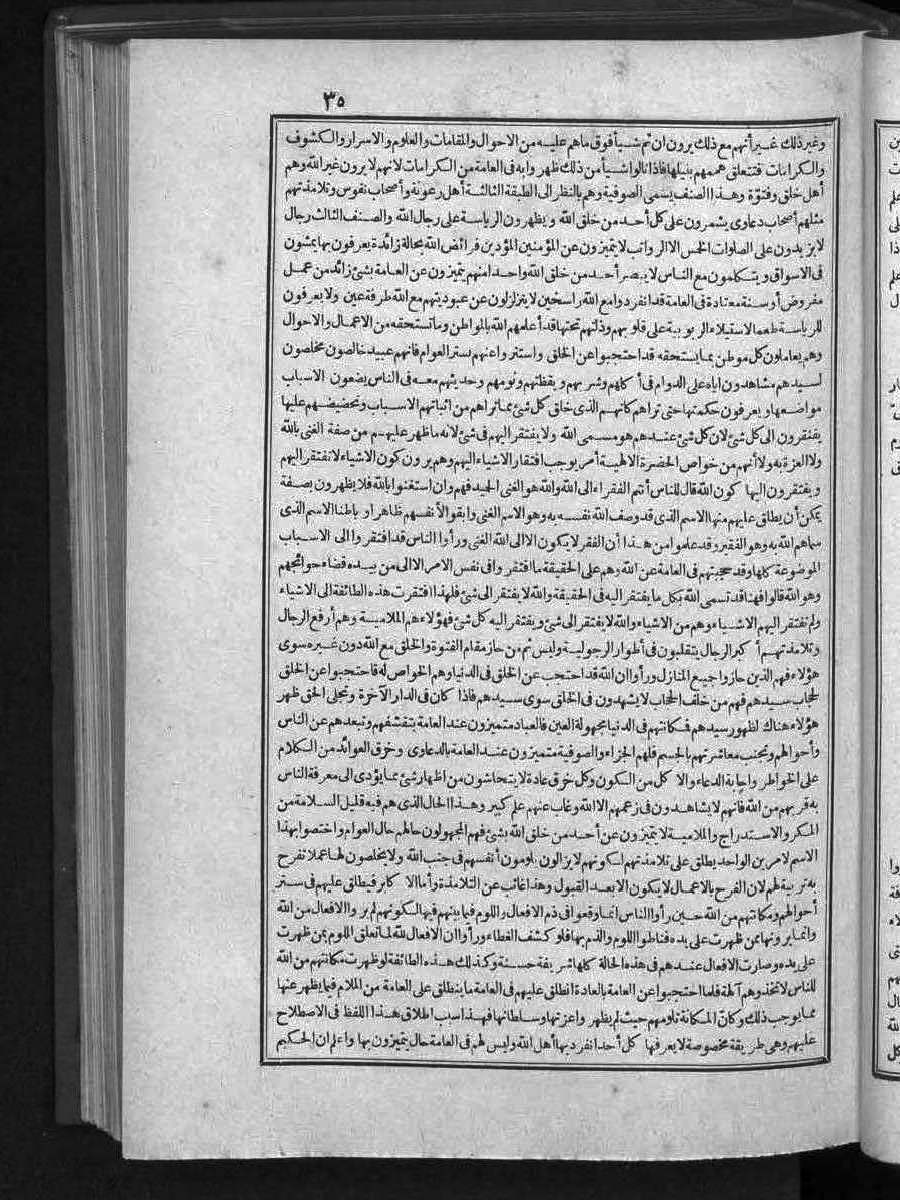 ٣٥
وغير ذلك غير أنهم مع ذلك يرون ان ثم شيأ فوق ما هم عليه من الاحوال والمقامات والعلوم والاسرار والكشوف
والكرامات فتتعلق هممهم بنيلها فاذا نالوا شيأ من ذلك ظهر وابه فى العامة من الكرامات لانهم لا يرون غير الله وهم
أهل خلق وفتوة وهذا الصنف يسمى الصوفية وهم بالنظر الى الطبقة الثالثة أهل رعونة وأصحاب نفوس وتلامذتهم
مثلهم أصحاب دعاوى يشمرون على كل أحد من خلق الله ويظهرون الرياسة على رجال الله والصنف الثالث رجال
لا يزيدون على الصلوات الخمس الا الرواتب لا يتميزون عن المؤمنين المؤدين فرائض الله بحالة زائدة يعرفون بها يمشون
فى الاسواق ويتكلمون مع الناس لا يبصر أحد من خلق الله واحدا منهم يتميز ون عن العامة بشئ زائد من عمل
مفروض أوسنة معتادة فى العامة قد انفردوا مع الله راسخين لا يتزلزلون عن عبوديتهم مع الله طرفة عين ولا يعرفون
للرياسة طعما لاستيلاء الربوبية على قلوبهم وذلتهم تحتها قد أعلمهم الله بالمواطن وما تستحقه من الاعمال والاحوال
وهم يعاملون كل موطن بما يستحقه قد احتجبوا عن الخلق واستتر واعنهم بستر العوام فانهم عبيد خالصون مخلصون
لسيدهم مشاهدون اياه على الدوام فى أكلهم وشربهم ويقظتهم ونومهم وحديثهم معه فى الناس يضعون الاسباب
مواضعها ويعرفون حكمتها حتى تراهم كانهم الذى خلق كل شئ مما تراهم من اثباتهم الاسباب وتحضيضهم عليها
يفتقرون الى كل شئ لان كل شئ عندهم هو مسمى الله ولا يفتقر اليهم فى شئ لانه ما ظهر عليهم من صفة الغنى بالله
ولا العزة به ولا أنهم من خواص الحضرة الالهية أمر يوجب افتقار الاشياء اليهم وهم يرون كون الاشياء لا تفتقر اليهم
ويفتقرون اليها كون الله قال للناس أنتم الفقراء الى الله والله هو الغنى الحميد فهم وان استغنوا بالله فلا يظهرون بصفة
يمكن أن يطلق عليهم منها الاسم الذى قد وصف الله نفسه به وهو الاسم الغنى وابقوا لأنفسهم ظاهرا وباطنا الاسم الذى
سماهم الله به وهو الفقير وقد علموا من هذا أن الفقر لا يكون الا الى الله الغنى ورأوا الناس قد افتقر وا الى الاسباب
الموضوعة كلها وقد حجبتهم فى العامة عن الله وهم على الحقيقة ما افتقروا فى نفس الامر الا الى من بيده قضاء حوائجهم
وهو الله قالوا فهنا قد تسمى الله بكل ما يفتقر اليه فى الحقيقة والله لا يفتقر الى شئ فلهذا افتقرت هذه الطائفة الى الاشياء
ولم تفتقر اليهم الاشياء وهم من الاشياء والله لا يفتقر الى شئ ويفتقر اليه كل شئ فهؤلاءهم الملامية وهم أرفع الرجال
وتلامذتهم أكبر الرجال يتقلبون فى أطوار الرجولية وليس ثم من حاز مقام الفتوة والخلق مع الله دون غيره سوى
هؤلاء فهم الذين حازوا جميع المنازل ورأوا ان الله قد احتجب عن الخلق فى الدنيا وهم الخواص له فاحتجبوا عن الخلق
لحجاب سيدهم فهم من خلف الحجاب لا يشهدون فى الخلق سوى سيدهم فاذا كان فى الدار الآخرة وتجلى الحق ظهر
هؤلاء هناك لظهور سيدهم فمكانتهم فى الدنيا مجهولة العين فالعباد متميزون عند العامة بتقشفهم وتبعدهم عن الناس
وأحوالهم وتجنب معاشرتهم بالجسم فلهم الجزاء والصوفية متميزون عند العامة بالدعاوى وخرق العوائد من الكلام
على الخواطر واجابة الدعاء والاكل من الكون وكل خرق عادة لا يتحاشون من اظهار شئ مما يؤدى الى معرفة الناس
به قربهم من الله فانهم لا يشاهدون فى زعمهم الا الله وغاب عنهم علم كبير وهذا الحال الذى هم فيه قليل السلامة من
المكر والاستدراج والملامية لا يتميزون عن أحد من خلق الله بشئ فهم المجهولون حالهم حال العوام واختصوا بهذا
الاسم لامرين الواحد يطلق على تلامذتهم لكونهم لا يزالون يلومون أنفسهم فى جنب الله ولا يخلصون لها عملا تفرح
به تربية لهم لان الفرح بالاعمال لا يكون الا بعد القبول وهذا غائب عن التلامذة وأما الاكابر فيطلق عليهم فى ستر
أحوالهم ومكانتهم من الله حين رأوا الناس انما وقعوا فى ذم الافعال واللوم فيما بينهم فيها لكونهم لم يروا الافعال من الله
وانما يرونها ممن ظهرت على يده فناطوا اللوم والذم بها فلو كشف الغطاء ورأوا ان الافعال لله لما تعلق اللوم بمن ظهرت
على يده وصارت الافعال عندهم فى هذه الحالة كلها شريفة حسنة وكذلك هذه الطائفة لو ظهرت مكانتهم من الله
للناس لاتخذوهم آلهة فلما احتجبوا عن العامة بالعادة انطلق عليهم فى العامة ما ينطلق على العامة من الملام فيما يظهر عنها
مما يوجب ذلك وكان المكانة تلومهم حيث لم يظهر واعزتها وسلطانها فهذا سبب اطلاق هذا اللفظ فى الاصطلاح
عليهم وهى طريقة مخصوصة لا يعرفها كل أحد انفرد بها أهل الله وليس لهم فى العامة حال يتميزون بها واعلم ان الحكيم